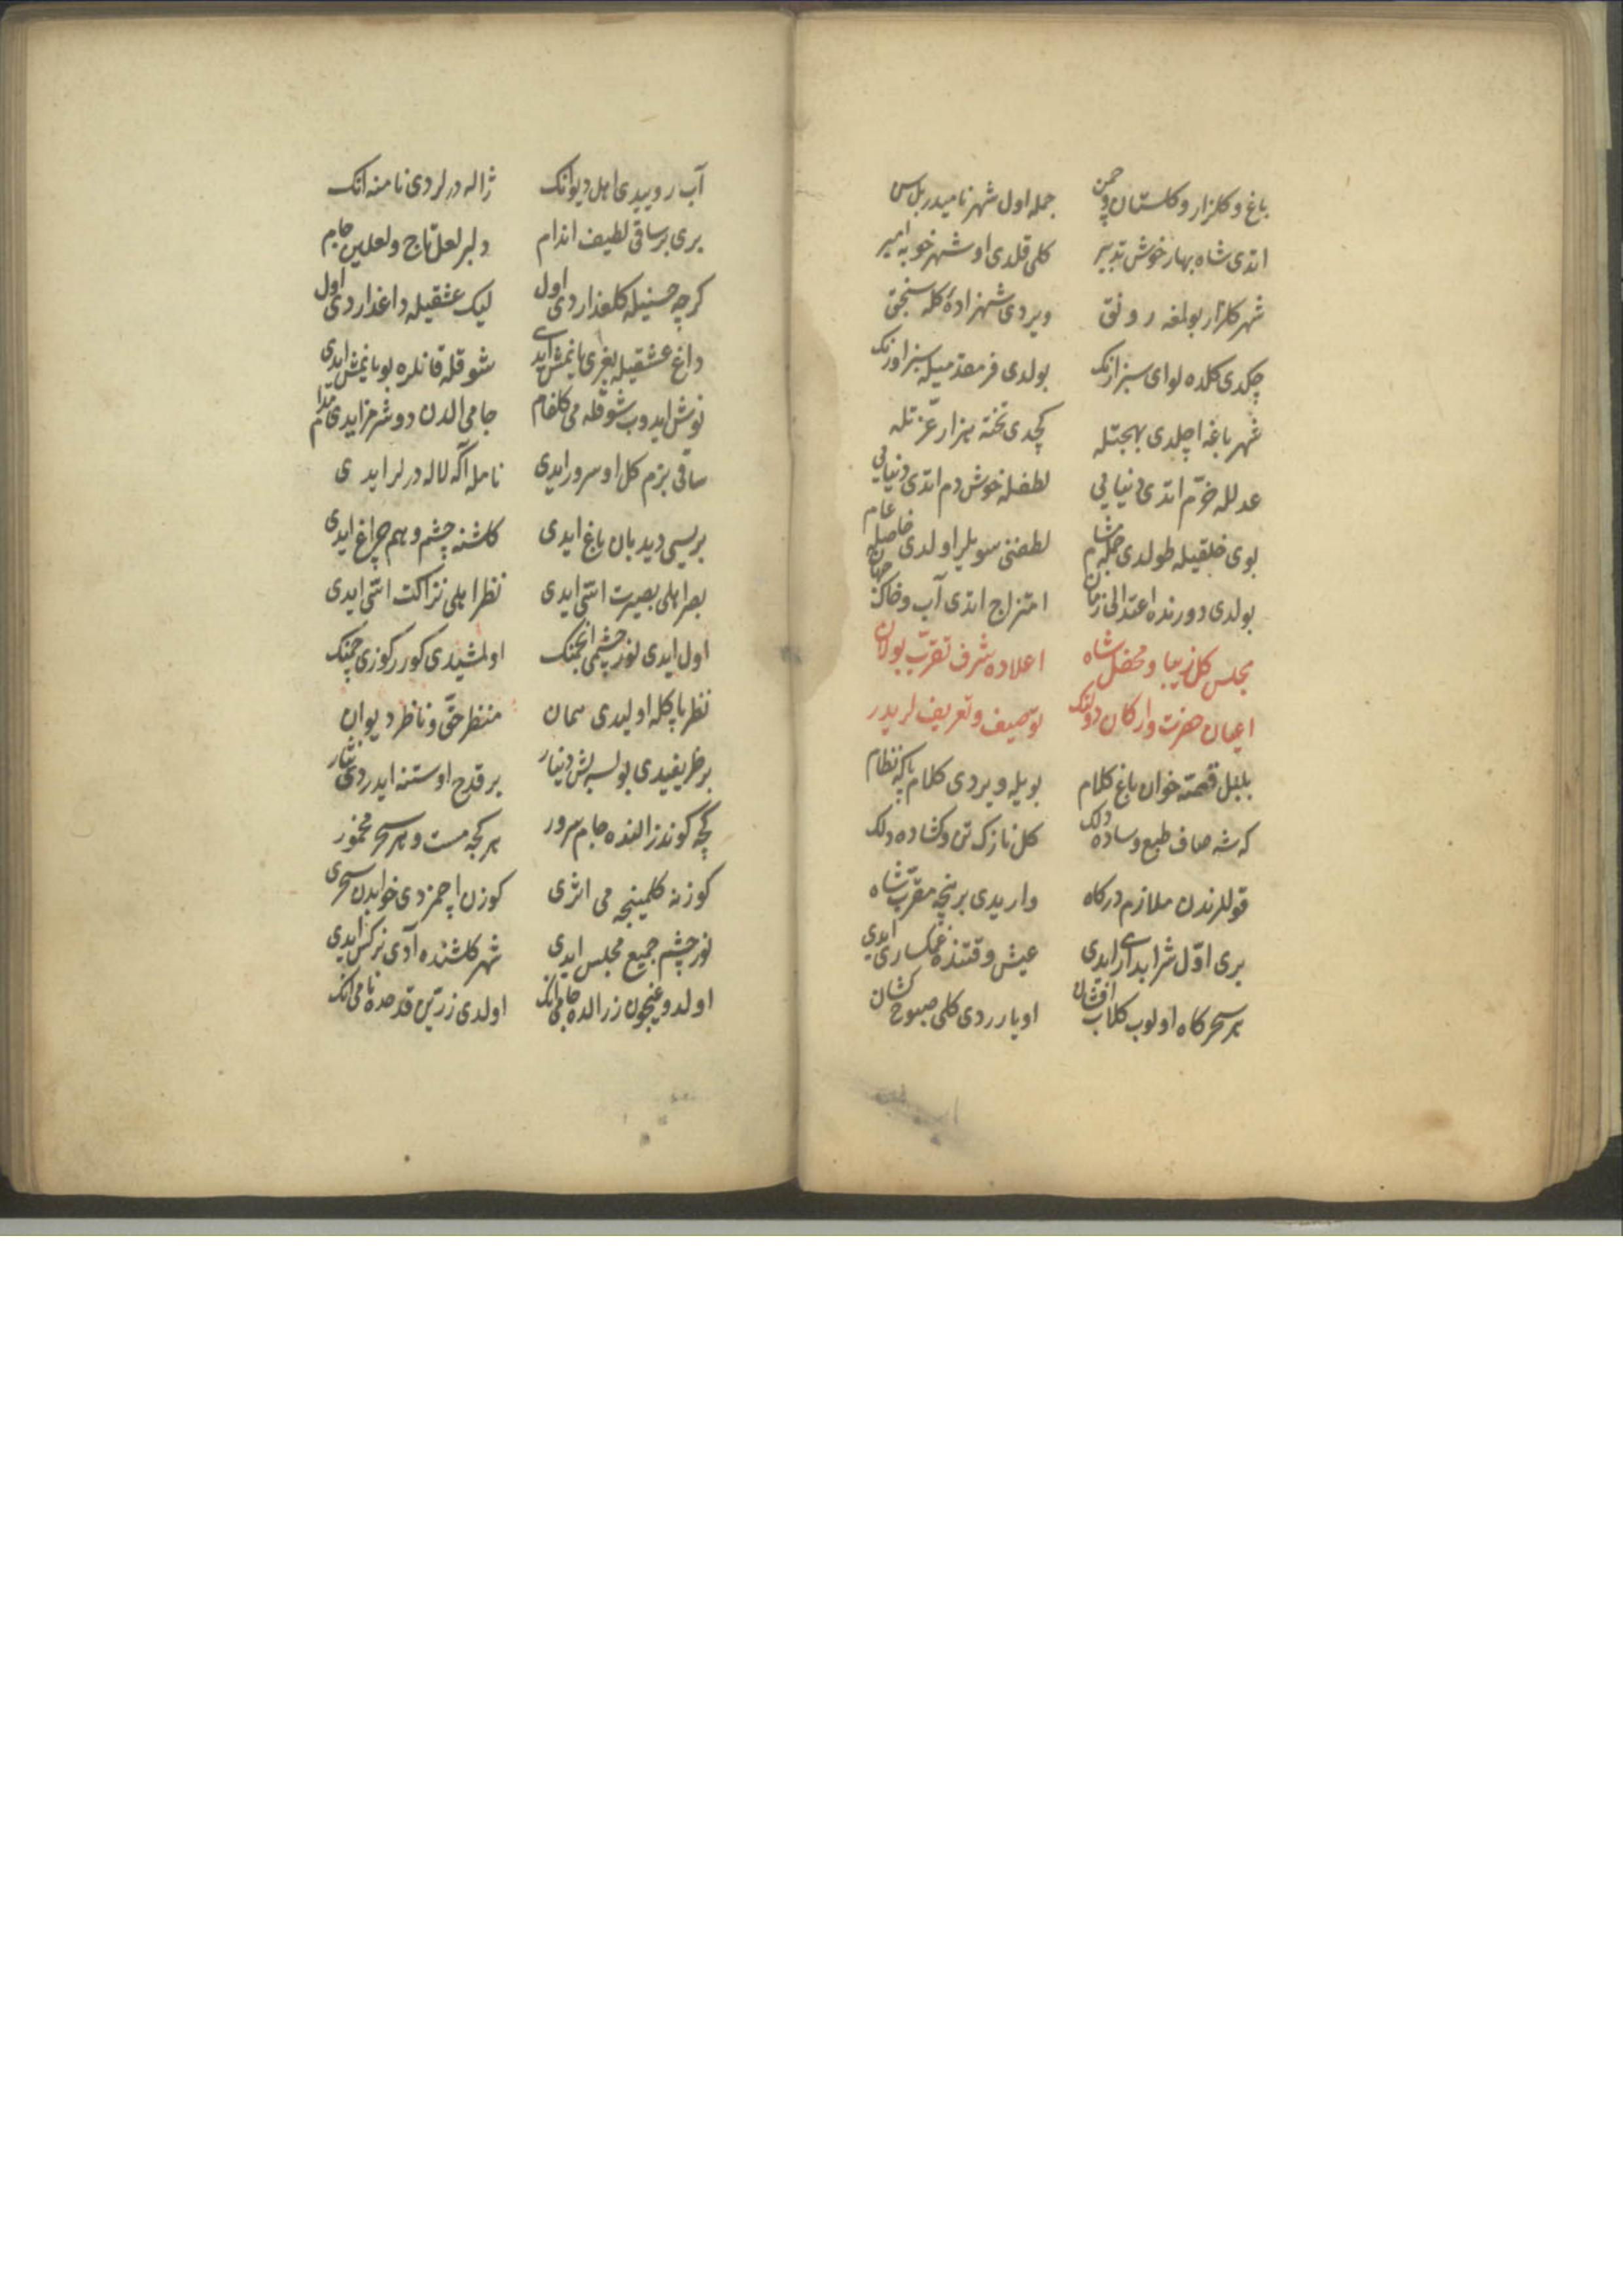 باغ و كلزار و كلستان و چمن جمله اول شهر نامیدر بل سن
اتدی شاه بهار خوش تدبیر كلی قلدی او شهر خوبه امیر
شهر كلزار بولمغه رونق ویردی شهزادۀ كله سنجق
چكدی كلده لوای سبز ارنك بولدی فر مقدمیله سبز اورنك
شهر باغه اچلدی بهجتله كچدی تخته هزار عزتله
عدلله خرم اتدی دنیایی لطفله خوش دم اتدی دنیایی
بوی خلقیله طولدی جمله مشام لطفنی سویلر اولدی خاصیله عام
بولدی دورنده اعتدالی زمان امتزاج اتدی آب و خاك جهان
مجلس كل زیبا و محفل شاه اعلاده شرف تقرب بولان
اعیان حضرت و اركان دولتك توصیف و تعریفلریدر
بلبل قصه خوان باغ كلام بویله ویردی كلام پاكه نظام
كه شه صاف طبع و ساده دلك كل نازك تن و كشاده دلك
قوللرندن ملازم دركاه وار یدی بر نچه مقرب شاه
بری اول شرابداری ایدی عیش وقتنده غمكساری ایدی
هر سحركاه اولوب كلاب افشان اویارردی كلی صبوح كشان
آب روییدی اهل دیوانك ژاله درلردی نامنه انك
بری بر ساقی لطیف اندام دلبر لعل تاج و لعلین جام
كرچه حسنیله كلعذاردی اول لیك عشقیله داغداردی اول
داغ عشقیله بغری یانمش ایدی شوقله قانلره بویانمش ایدی
نوش ایدوب شوقله می كلفام جامی الدن دوشرمز ایدی مدام
ساقی بزم كل او سرور ایدی نامله اكه لاله درلر ایدی
بریسی دیدبان باغ ایدی كلشنه چشم و هم چراغ ایدی
بصر اهلی بصیرت اتی ایدی نظر اهلی نزاكت اتی ایدی
اول ایدی نور چشمی انجمنك اولمشیدی كورر كوزی چمنك
نظر پاكله اولیدی همان منظر حق و ناظر دیوان
بر ظریفیدی بولسه بش دینار بر قدح اوستنه ایدردی نثار
كچه كوندز النده جام سرور هر كجه مست و هر سحر مخمور
كوزنه كلمینجه می اثری كوزن اچمزدی خوابدن سحری
نور چشم جمیع مجلس ایدی شهر كلشنده آدی نركس ایدی
اولدوغیچون زر الده جامی انك اولدی زرین قدح ده نامی انك